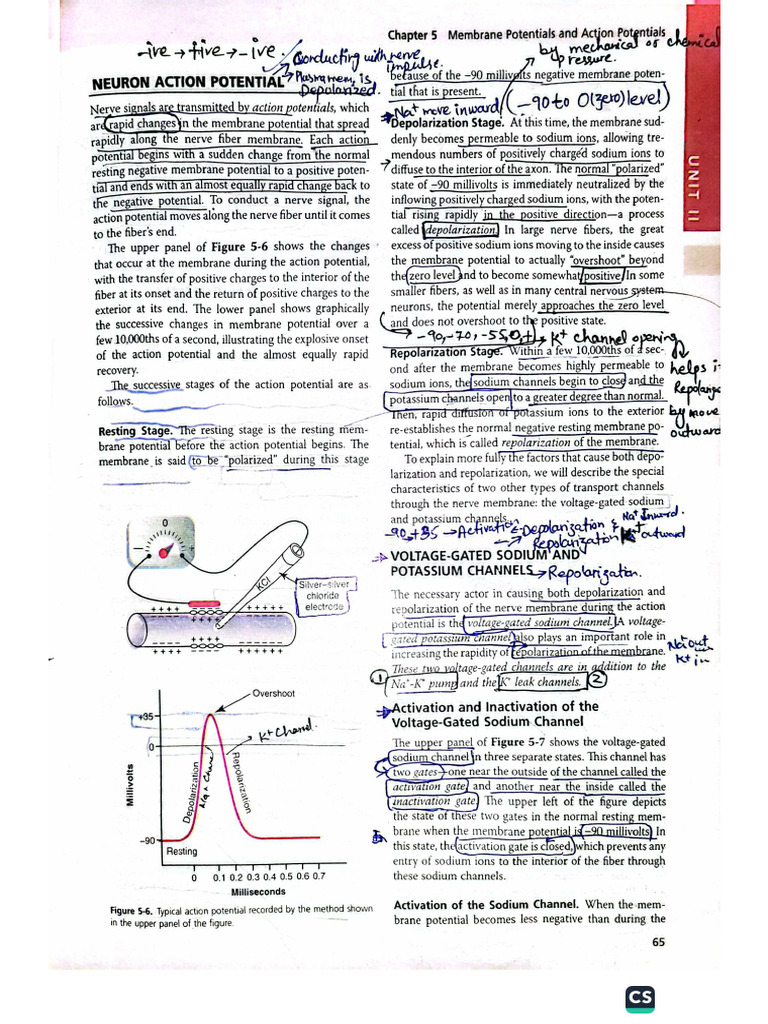 Chapter 5 Membrane Potentials and Action Potentials
-ive → +ive → -ive.
Conducting with nerve
impulse.
Plasma mem. is
Depolarized.
NEURON ACTION POTENTIAL
Nerve signals are transmitted by action potentials, which
are rapid changes in the membrane potential that spread
rapidly along the nerve fiber membrane. Each action
potential begins with a sudden change from the normal
resting negative membrane potential to a positive poten-
tial and ends with an almost equally rapid change back to
the negative potential. To conduct a nerve signal, the
action potential moves along the nerve fiber until it comes
to the fiber's end.
The upper panel of Figure 5-6 shows the changes
that occur at the membrane during the action potential,
with the transfer of positive charges to the interior of the
fiber at its onset and the return of positive charges to the
exterior at its end. The lower panel shows graphically
the successive changes in membrane potential over a
few 10,000ths of a second, illustrating the explosive onset
of the action potential and the almost equally rapid
recovery.
The successive stages of the action potential are as
follows.
Resting Stage. The resting stage is the resting mem-
brane potential before the action potential begins. The
membrane is said to be "polarized" during this stage
0
− +
KCl
Silver–silver
chloride
electrode
+ + + + + + + + +
– – – – – – – – –
+ + + + + + + + +
Overshoot
+35
0
–90
Millivolts
Depolarization
Na+ Channel
K+ Channel.
Repolarization
Resting
0 0.1 0.2 0.3 0.4 0.5 0.6 0.7
Milliseconds
Figure 5-6. Typical action potential recorded by the method shown
in the upper panel of the figure.
by mechanical or chemical
pressure.
because of the −90 millivolts negative membrane poten-
tial that is present.
Na+ move inward (-90 to 0 (zero) level)
Depolarization Stage. At this time, the membrane sud-
denly becomes permeable to sodium ions, allowing tre-
mendous numbers of positively charged sodium ions to
diffuse to the interior of the axon. The normal "polarized"
state of −90 millivolts is immediately neutralized by the
inflowing positively charged sodium ions, with the poten-
tial rising rapidly in the positive direction—a process
called depolarization. In large nerve fibers, the great
excess of positive sodium ions moving to the inside causes
the membrane potential to actually "overshoot" beyond
the zero level and to become somewhat positive. In some
smaller fibers, as well as in many central nervous system
neurons, the potential merely approaches the zero level
and does not overshoot to the positive state.
-90, -70, -55, 0, + K+ channel opening
helps i-
Repolariz
by move
outward
Repolarization Stage. Within a few 10,000ths of a sec-
ond after the membrane becomes highly permeable to
sodium ions, the sodium channels begin to close and the
potassium channels open to a greater degree than normal.
Then, rapid diffusion of potassium ions to the exterior
re-establishes the normal negative resting membrane po-
tential, which is called repolarization of the membrane.
To explain more fully the factors that cause both depo-
larization and repolarization, we will describe the special
characteristics of two other types of transport channels
through the nerve membrane: the voltage-gated sodium
and potassium channels.
-90, +35 → Activation → Depolarization & Na+ Inward.
→ Repolarization K+ outward
VOLTAGE-GATED SODIUM AND
POTASSIUM CHANNELS → Repolarization.
The necessary actor in causing both depolarization and
repolarization of the nerve membrane during the action
potential is the voltage-gated sodium channel. A voltage-
gated potassium channel also plays an important role in
increasing the rapidity of repolarization of the membrane.
These two voltage-gated channels are in addition to the
Na+-K+ pump and the K+ leak channels.
1
2
Na+ out
K+ in
Activation and Inactivation of the
Voltage-Gated Sodium Channel
The upper panel of Figure 5-7 shows the voltage-gated
sodium channel in three separate states. This channel has
two gates—one near the outside of the channel called the
activation gate, and another near the inside called the
inactivation gate. The upper left of the figure depicts
the state of these two gates in the normal resting mem-
brane when the membrane potential is −90 millivolts. In
this state, the activation gate is closed, which prevents any
entry of sodium ions to the interior of the fiber through
these sodium channels.
Activation of the Sodium Channel. When the mem-
brane potential becomes less negative than during the
65
UNIT II
CS